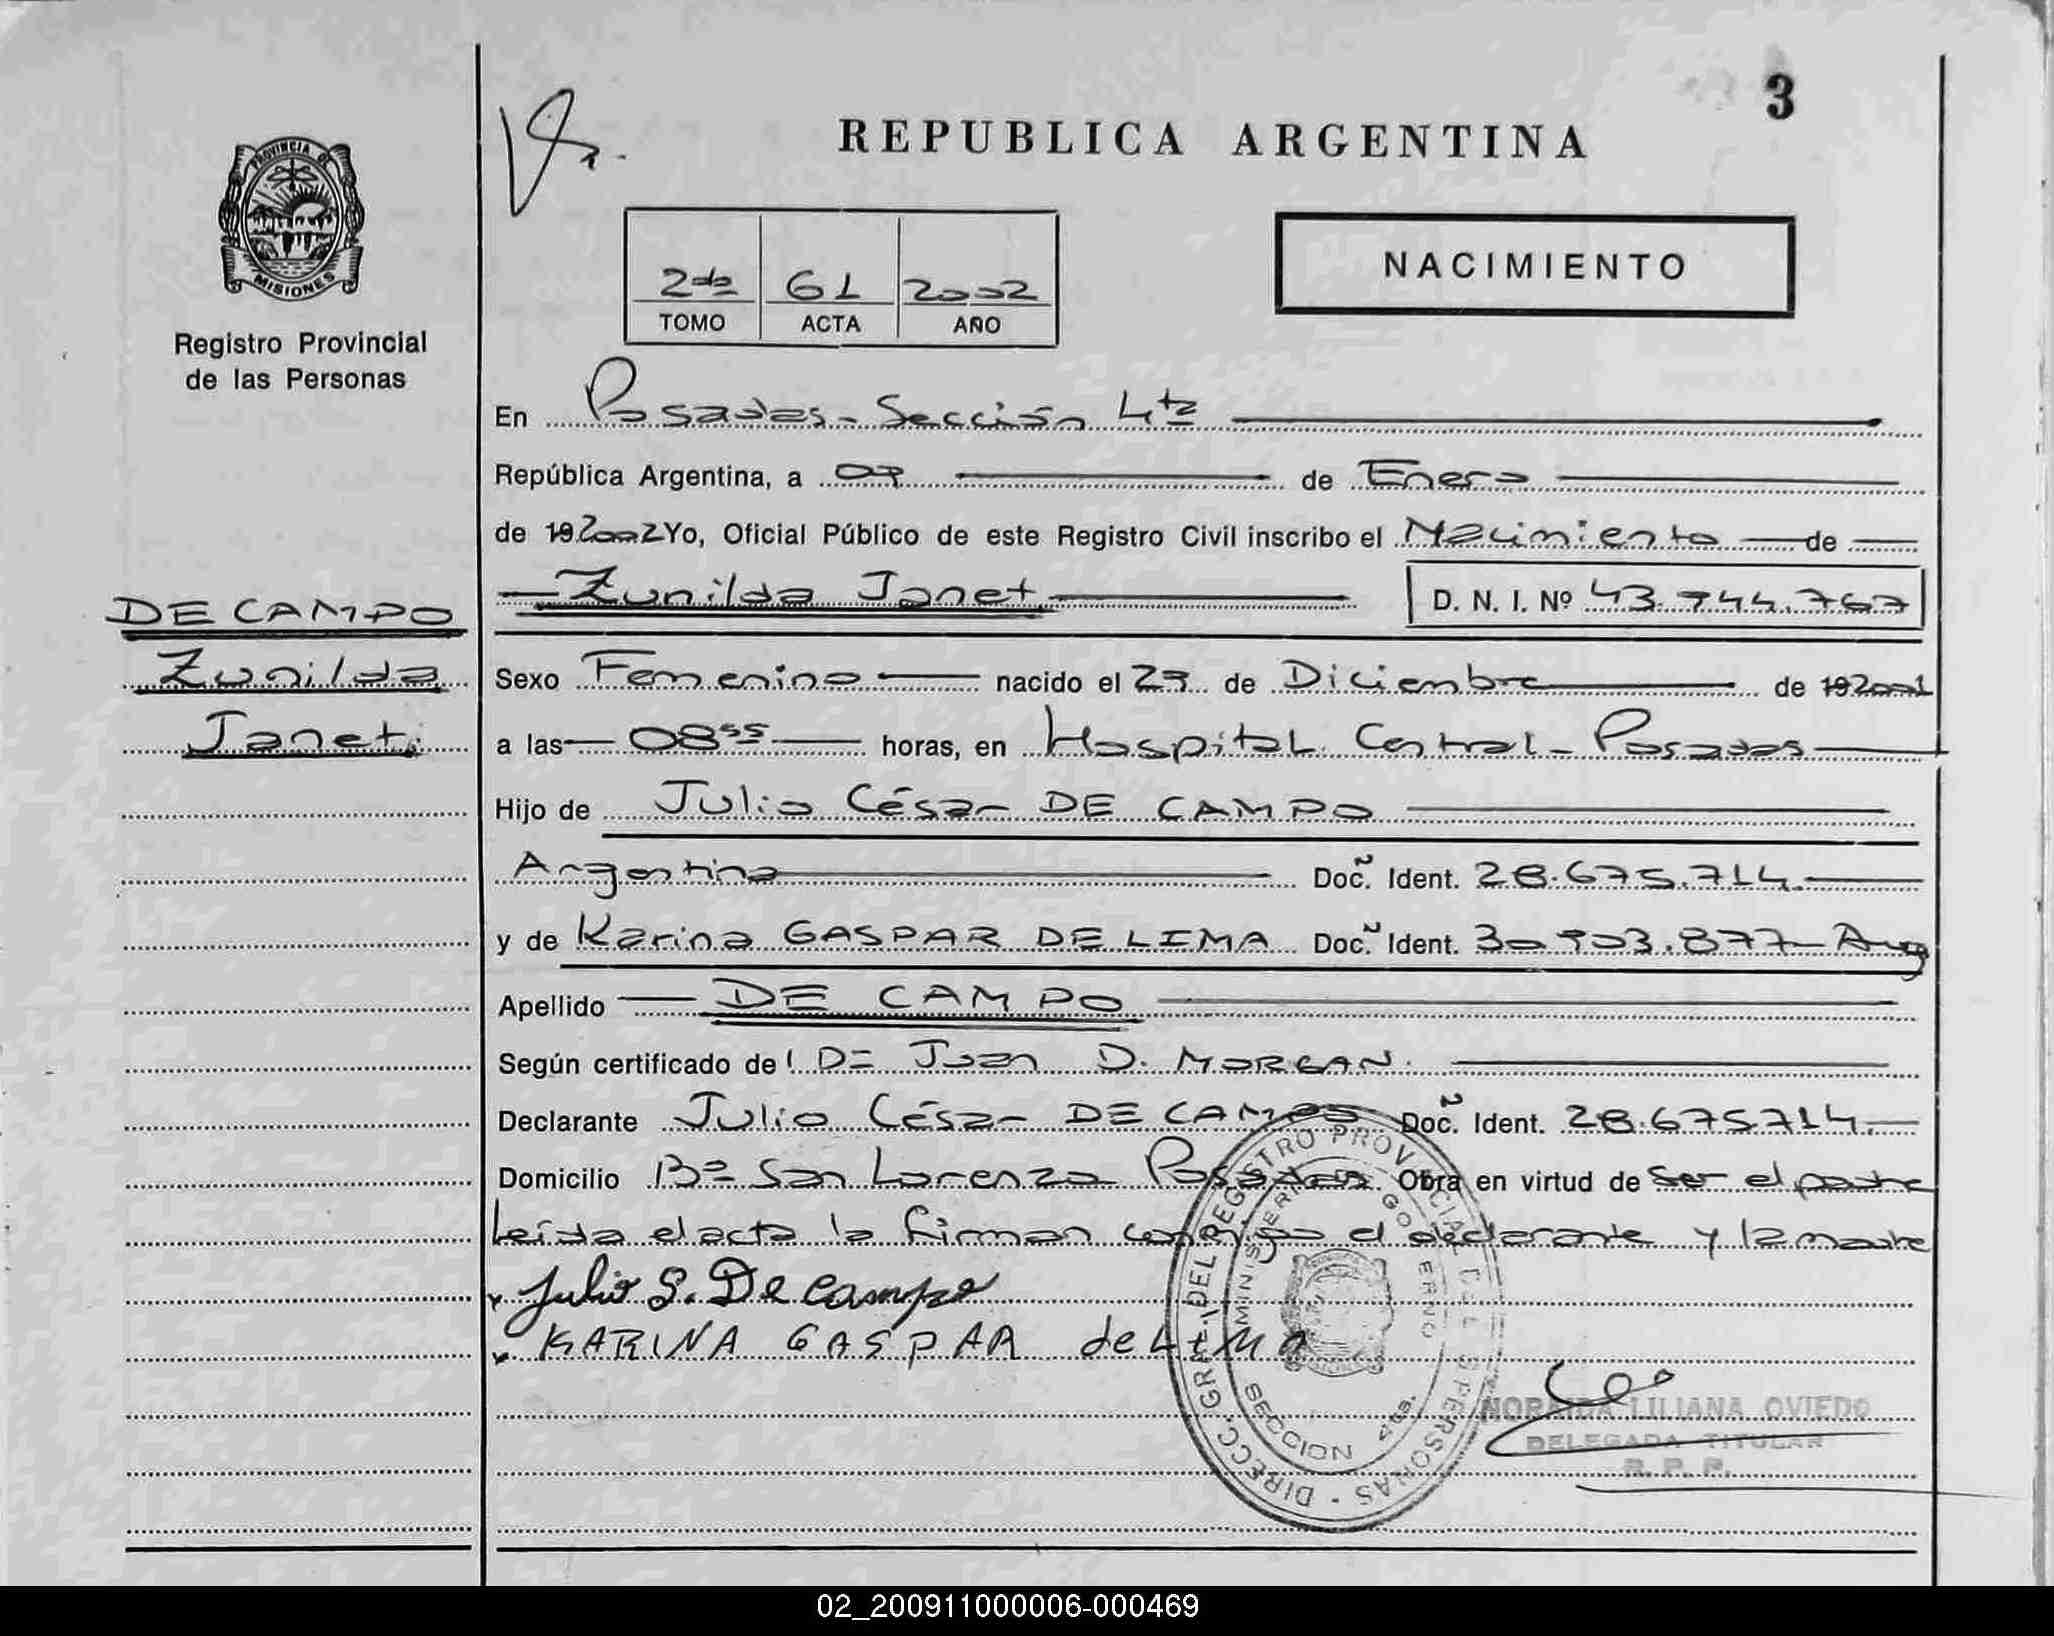 3
REPUBLICA ARGENTINA
PROVINCIA DE
MISIONES
Registro Provincial
de las Personas
2do 61 2002
TOMO ACTA AÑO
NACIMIENTO
En Posadas - Sección 4ta
República Argentina, a 07 de Enero
de 19 2002 Yo, Oficial Público de este Registro Civil inscribo el Nacimiento de
Zunilda Janet D. N. I. Nº 43.744.767
DE CAMPO
Zunilda
Janet
Sexo Femenino nacido el 29 de Diciembre de 19 2001
a las 08 55 horas, en Hospital Central - Posadas
Hijo de Julio César DE CAMPO
Argentina Doc. Ident. 28.675.714.
y de Karina GASPAR DE LIMA Doc. Ident. 30.903.877 - Arg
Apellido DE CAMPO
Según certificado de l Dr Juan D. MORGAN.
Declarante Julio César DE CAMPO Doc. Ident. 28.675714.
Domicilio Bº San Lorenzo Posadas Obra en virtud de Ser el padre
Leída el acta la firman conmigo el declarante y la madre
Julio S. De campo
KARINA GASPAR de LiMa
DIRECC. GRAL. DEL REGISTRO PROVINCIAL DE LAS PERSONAS
MINISTERIO GOBIERNO
SECCION
NORAIDA LILIANA OVIEDO
DELEGADA TITULAR
R. P. P.
02_200911000006-000469